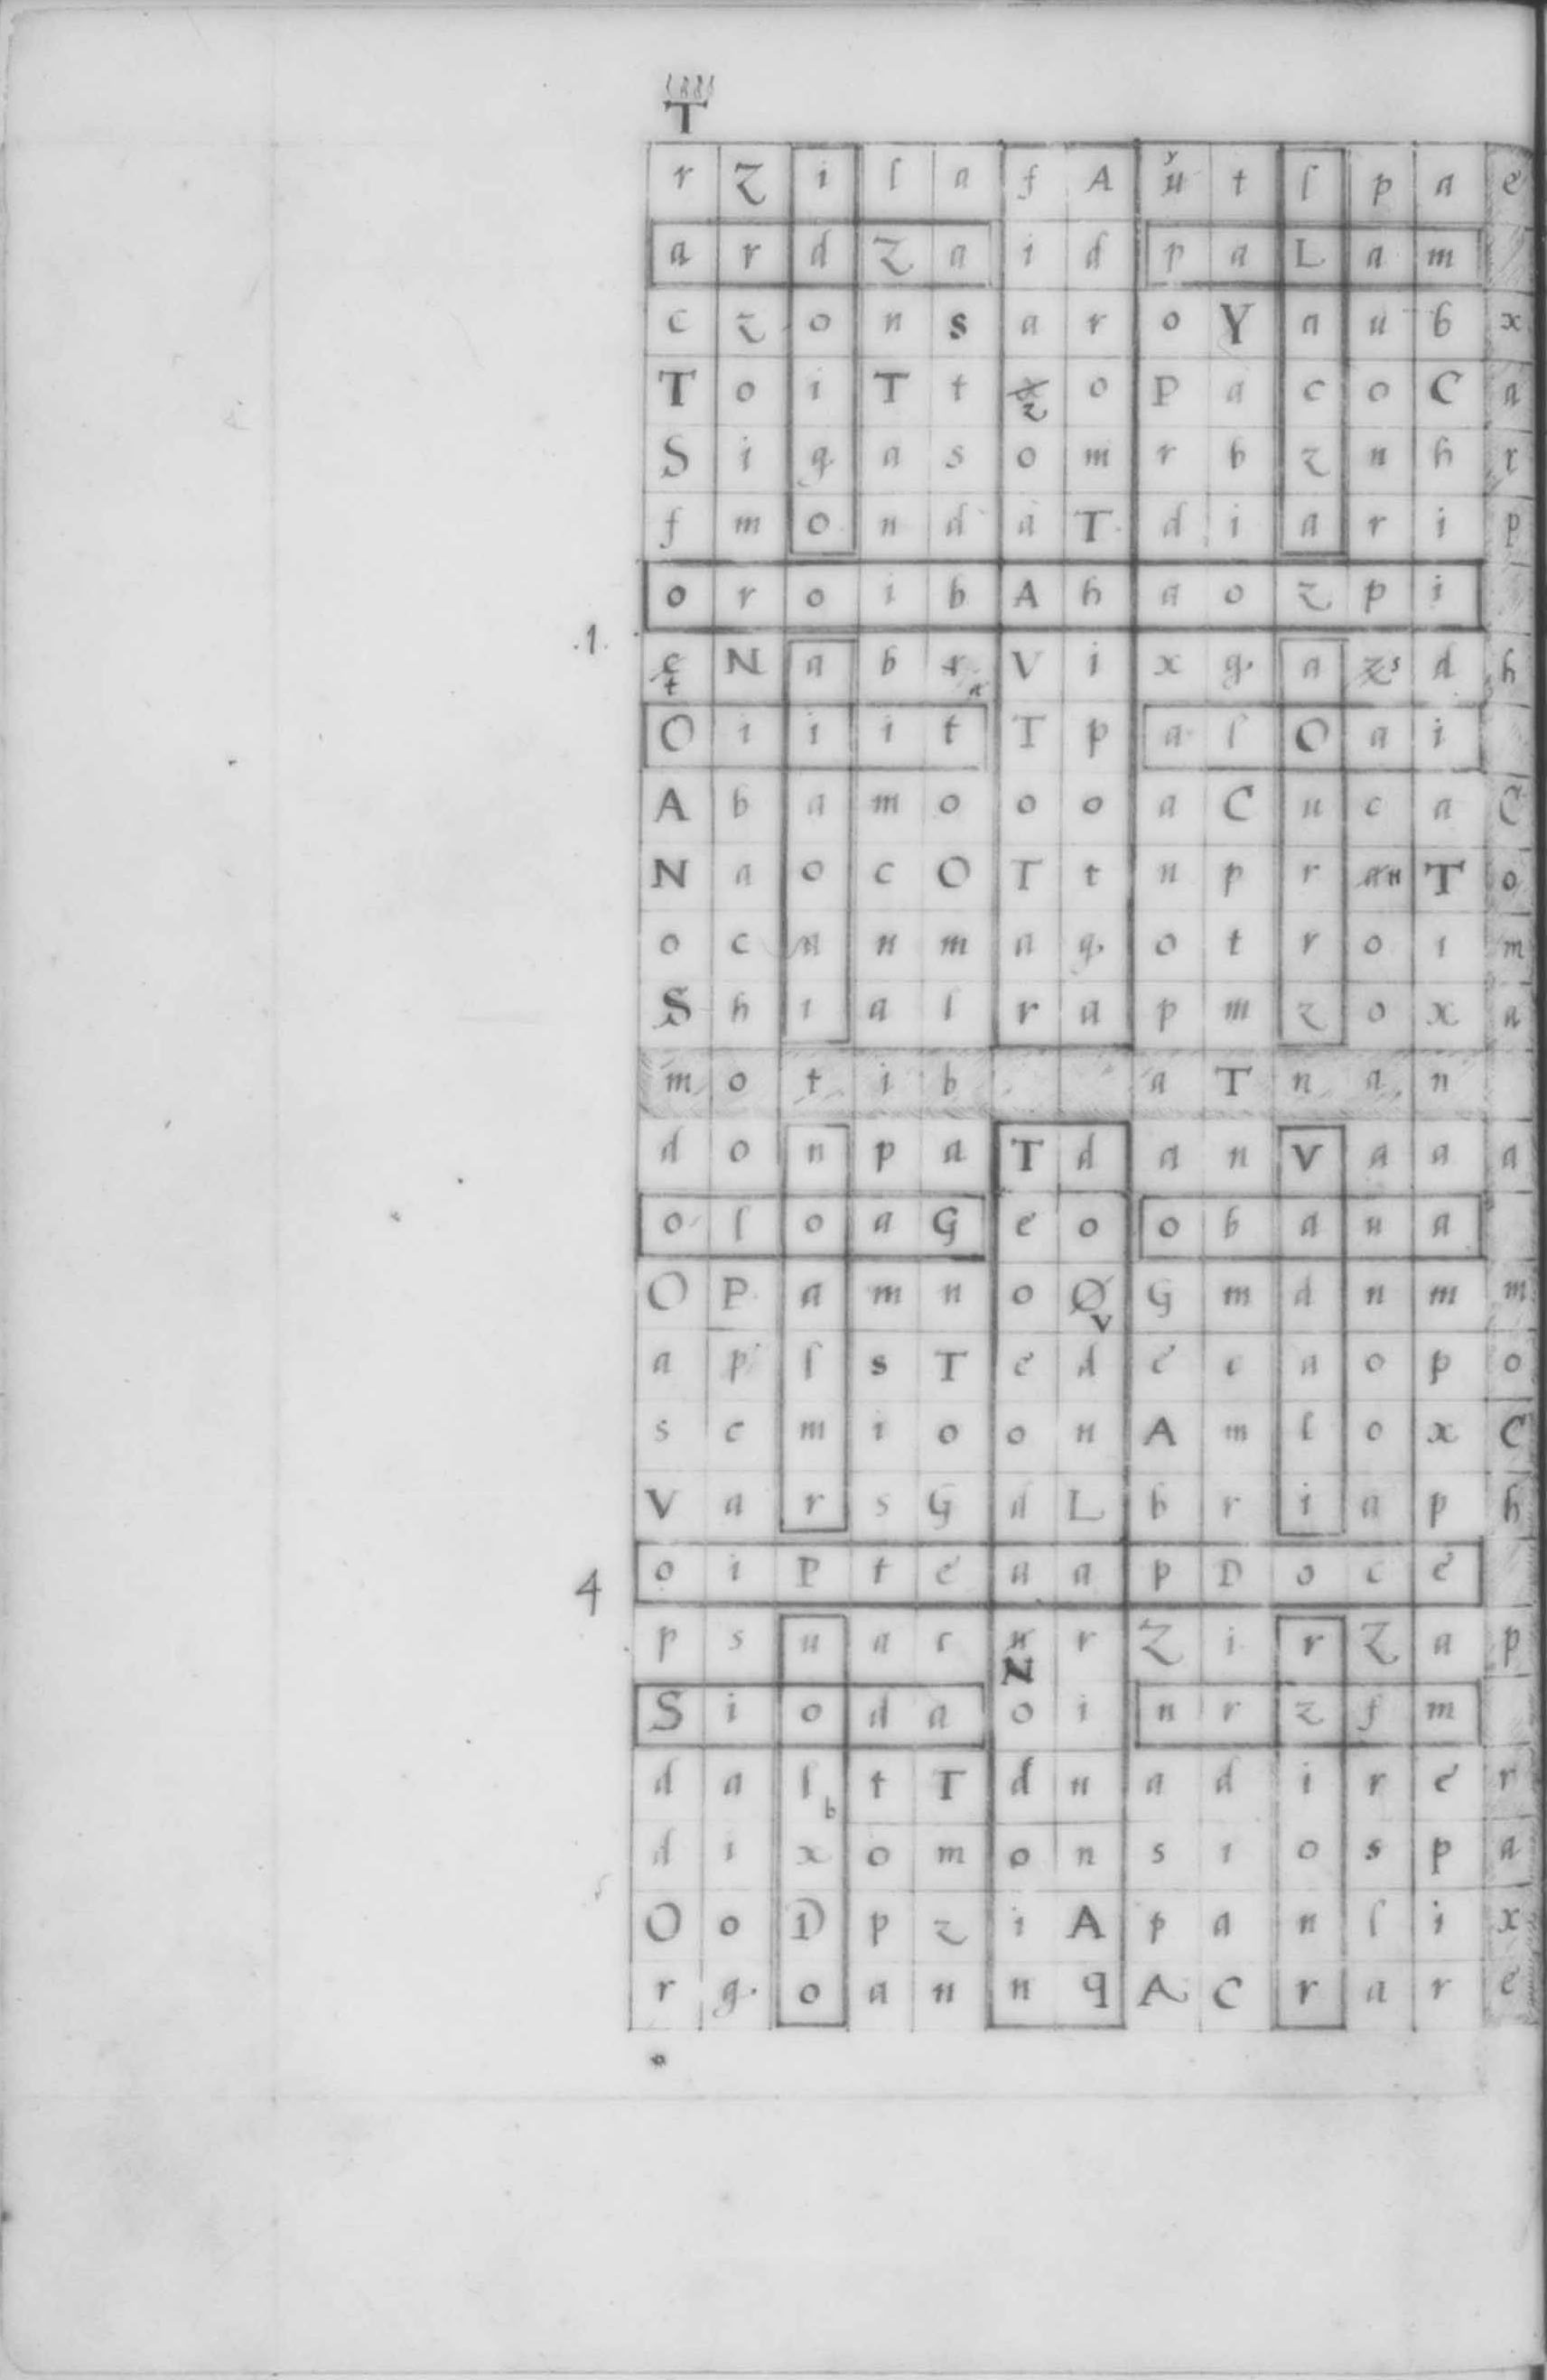 T
r Z i l a f A u y t l p a e
a r d Z a i d p a L a m
c z o n s a r o Y a u b x
T o i T t x z o P a c o C a
S i g a s o m r b z n h r
f m o n d a T d i a r i p
o r o i b A h a o z p i
.1.
e t N a b r a V i x g a z s d h
O i i i t T p a l O a i
A b a m o o o a C u c a C
N a o c O T t n p r a n T o
o c a n m a g o t r o i m
S h i a l r a p m z o x a
m o t i b a T n a n
d o n p a T d a n V a a a
o l o a G e o o b a u a
O P a m n o O V G m d n m m
a p l s T e d e c a o p o
s c m i o o n A m l o x C
V a r s G d L b r i a p h
4
o i P t e a a p D o c e
p s u a c n N r Z i r Z a p
S i o d a o i n r z f m
d a l b t T d n a d i r e r
d i x o m o n s i o s p a
O o D p z i A p a n l i x
r g. o a n n q A C r a r e